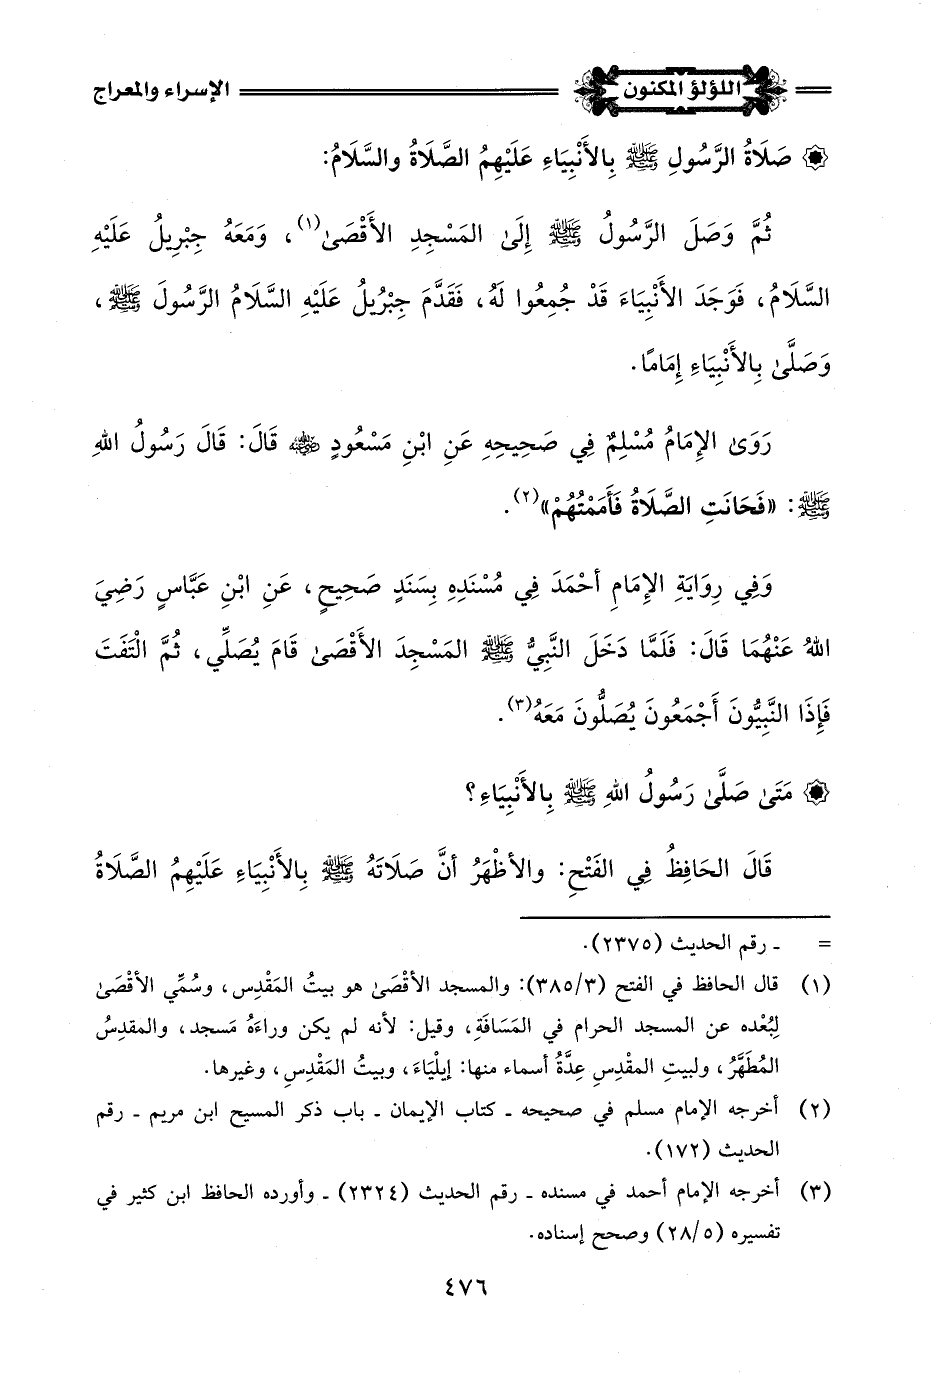 اللؤلؤ المكنون
الإسراء والمعراج
صَلَاةُ الرَّسُولِ ﷺ بِالأَنْبِيَاءِ عَلَيْهِمُ الصَّلَاةُ والسَّلَامُ:
ثُمَّ وَصَلَ الرَّسُولُ ﷺ إِلَىٰ المَسْجِدِ الأَقْصَىٰ(١)، وَمَعَهُ جِبْرِيلُ عَلَيْهِ
السَّلَامُ، فَوَجَدَ الأَنْبِيَاءَ قَدْ جُمِعُوا لَهُ، فَقَدَّمَ جِبْرِيلُ عَلَيْهِ السَّلَامُ الرَّسُولَ ﷺ،
وَصَلَّىٰ بِالأَنْبِيَاءِ إِمَامًا.
رَوَىٰ الإِمَامُ مُسْلِمٌ فِي صَحِيحِهِ عَنِ ابْنِ مَسْعُودٍ رضي الله عنه قَالَ: قَالَ رَسُولُ اللهِ
ﷺ: «فَحَانَتِ الصَّلَاةُ فَأَمَمْتُهُمْ»(٢).
وَفِي رِوَايَةِ الإِمَامِ أحْمَدَ فِي مُسْنَدِهِ بِسَنَدٍ صَحِيحٍ، عَنِ ابْنِ عَبَّاسٍ رَضِيَ
اللهُ عَنْهُمَا قَالَ: فَلَمَّا دَخَلَ النَّبِيُّ ﷺ المَسْجِدَ الأَقْصَىٰ قَامَ يُصَلِّي، ثُمَّ الْتَفَتَ
فَإِذَا النَّبِيُّونَ أَجْمَعُونَ يُصَلُّونَ مَعَهُ(٣).
مَتَىٰ صَلَّىٰ رَسُولُ اللهِ ﷺ بِالأَنْبِيَاءِ؟
قَالَ الحَافِظُ فِي الفَتْحِ: والأظْهَرُ أنَّ صَلَاتَهُ ﷺ بِالأَنْبِيَاءِ عَلَيْهِمُ الصَّلَاةُ
= ـ رقم الحديث (٢٣٧٥).
(١) قال الحافظ في الفتح (٣٨٥/٣): والمسجد الأقْصَىٰ هو بيتُ المَقْدِس، وسُمِّي الأقْصَىٰ
لِبُعْده عن المسجد الحرام في المَسَافَةِ، وقيل: لأنه لم يكن وراءَهُ مَسجد، والمقدِسُ
المُطَهَّرُ، ولبيتِ المقْدِسِ عِدَّةُ أسماء منها: إيلْيَاءَ، وبيتُ المَقْدِسِ، وغيرها.
(٢) أخرجه الإمام مسلم في صحيحه ـ كتاب الإيمان ـ باب ذكر المسيح ابن مريم ـ رقم
الحديث (١٧٢).
(٣) أخرجه الإمام أحمد في مسنده ـ رقم الحديث (٢٣٢٤) ـ وأورده الحافظ ابن كثير في
تفسيره (٢٨/٥) وصحح إسناده.
٤٧٦